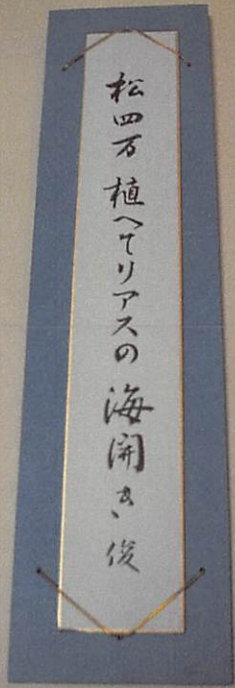 松四万植へてリアスの海開き 俊